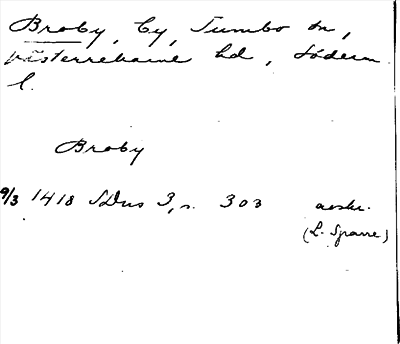 Broby, by, Tumbo sn,
västerrekarne hd, Söderm.
l.
Broby
9/3 1418 SDns 3, s. 303 avskr.
(L. Sparre)